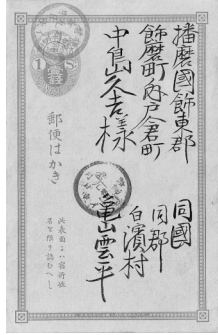 播磨國飾東郡
飾磨町字戸倉町
中島山久吉様
同國
同郡
白濱村
亀山雲平
郵便はかき
此表面ニハ宿所姓
名ヲ限リ認ムヘし